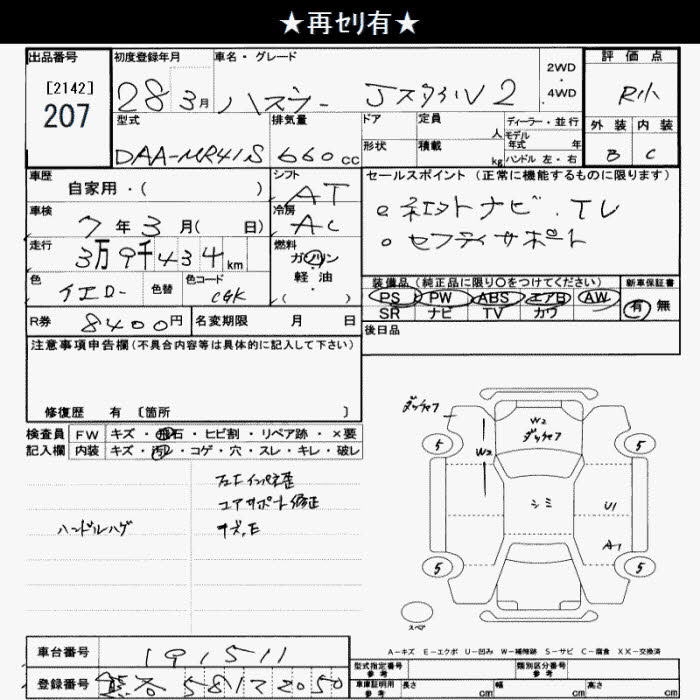 ★再ｾﾘ有★
出品番号
[2142]
207
初度登録年月
28 3月
車名・グレード
ハスラー Jスタイル 2
2WD
・
4WD
評価点
R小
外装 内装
B C
型式
DAA-MR41S
排気量
660cc
ドア
形状
定員 人
積載 kg
ディーラー・並行
モデル
年式 年
ハンドル 左・右
車歴
自家用・( )
シフト
AT
車検
7年3月( 日)
冷房
AC
走行
3万9千434km
燃料
ガソリン
軽・油
( )
色
イエロー
色替
色コード
CGK
R券 8400円
名変期限 月 日
セールスポイント (正常に機能するものに限ります)
ナビ.TV
○セフティサポート
装備品 (純正品に限り○をつけてください)
新車保証書
PS PW ABS エアB AW
SR ナビ TV カワ
有 無
後日品
注意事項申告欄 (不具合内容等は具体的に記入して下さい)
修復歴 有 〔箇所 〕
検査員
記入欄
FW キズ・飛石・ヒビ割・リペア跡・×要
内装 キズ・汚レ・コゲ・穴・スレ・キレ・破レ
コアサポート修正
ハンドルハゲ
キズ,E
W2
W2
シミ
U1
A1
5
5
5
5
スペア
A－キズ E－エクボ U－凹み W－補修跡 S－サビ C－腐食 XX－交換済
車台番号
191511
登録番号
58 1 2050
型式指定番号
参考
類別区分番号
参考
車庫証明用
参考
長さ cm
幅 cm
高さ cm